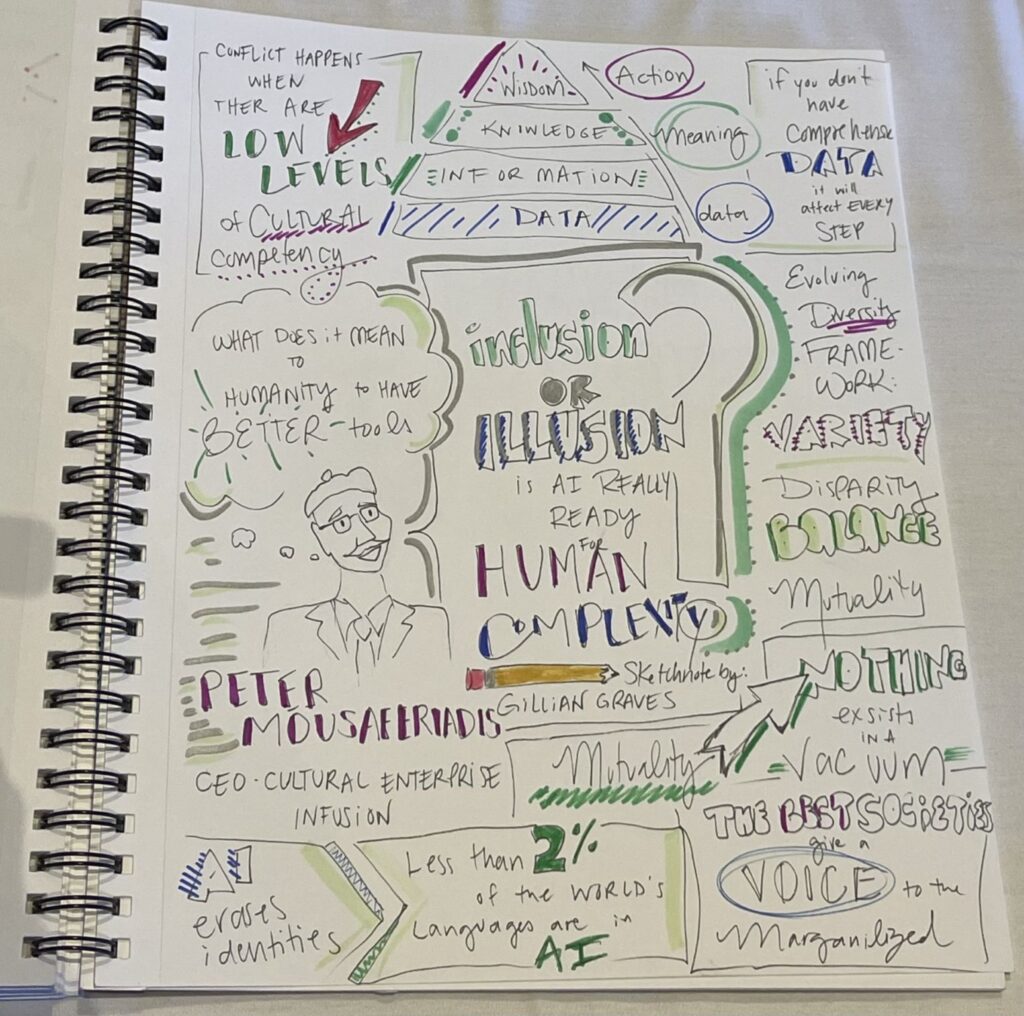 CONFLICT HAPPENS
WHEN
THER ARE
LOW
LEVELS
of CULTURAL
competency
WISDOM
KNOWLEDGE
INFORMATION
DATA
Action
Meaning
data
if you don't
have
comprehense
DATA
it will
affect EVERY
STEP
WHAT DOES it MEAN
TO
HUMANITY to HAVE
BETTER tools
inclusion
OR
ILLUSION
is AI REALLY
READY
FOR
HUMAN
COMPLEXITY
?
Evolving
Diversity
FRAME-
WORK:
VARIETY
DISPARITY
BALANCE
Mutuality
PETER
MOUSAFERIADIS
CEO - CULTURAL ENTERPRISE
INFUSION
Sketchnote by:
GILLIAN GRAVES
Mutuality
NOTHING
exsists
IN A
VACUUM
AI
erases
identities
Less than 2%
of the WORLD'S
Languages are in
AI
THE BEST SOCIETIES
give a
VOICE to the
Marganilized